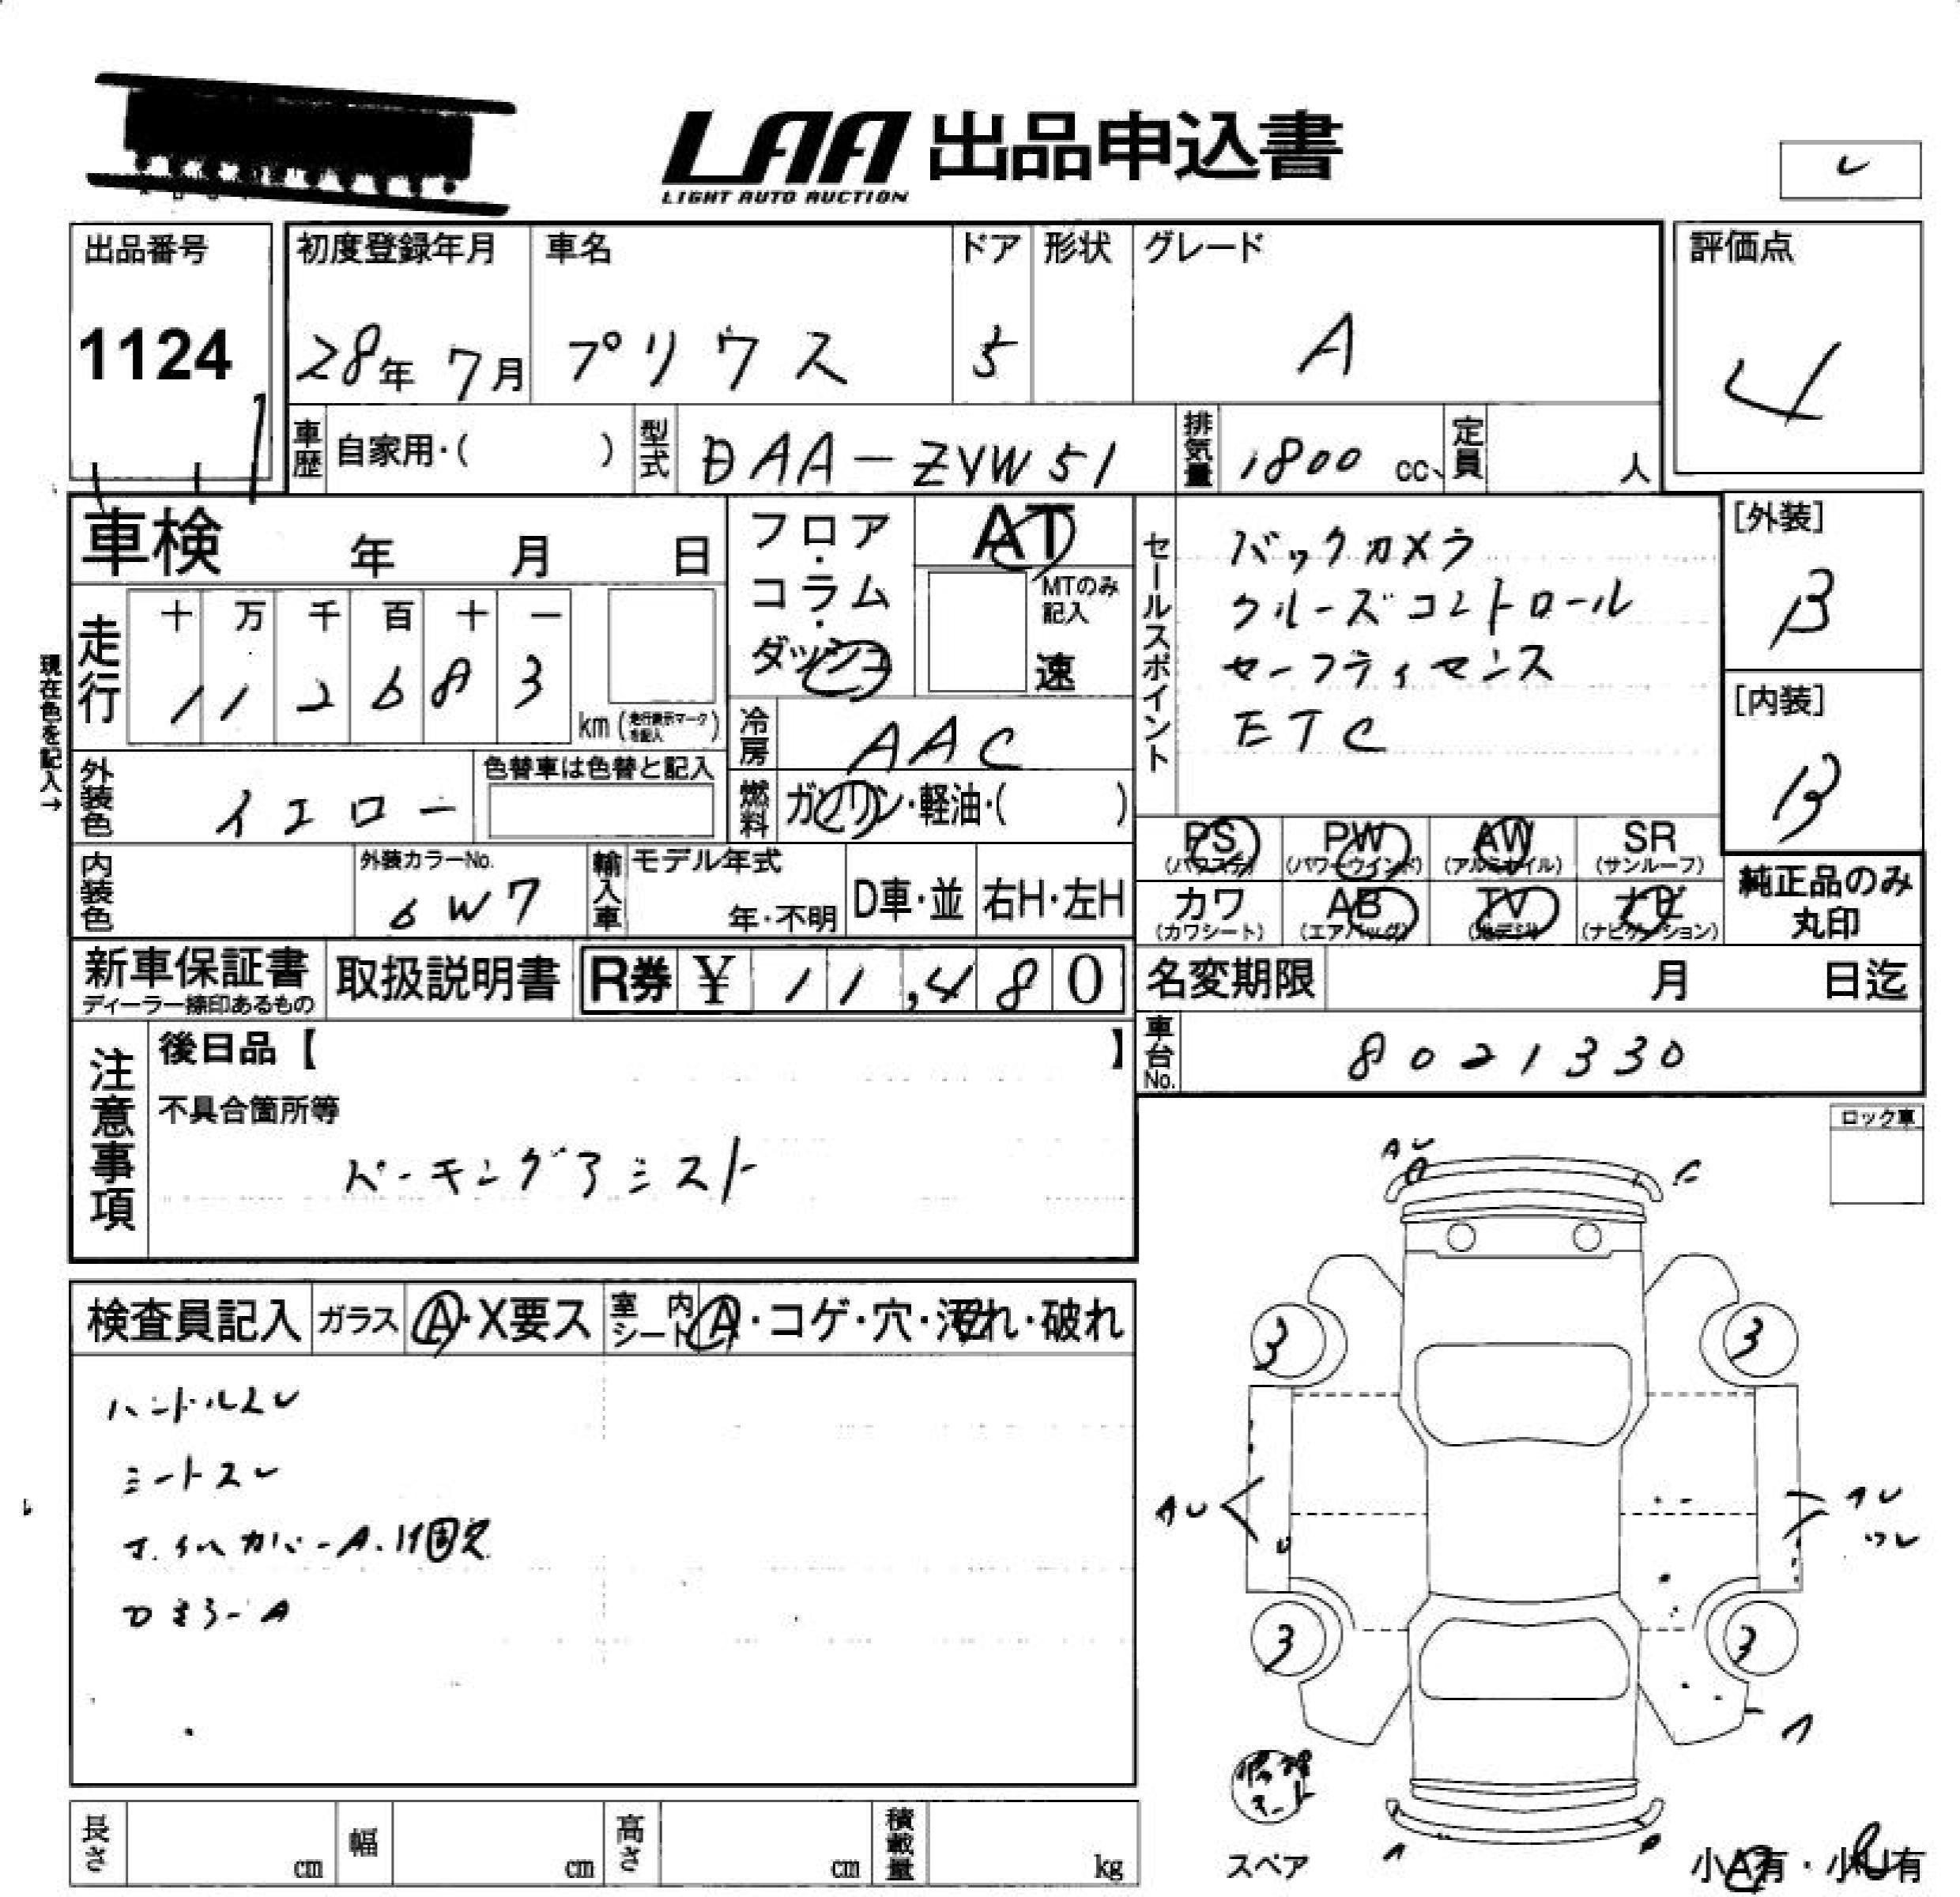 LAA 出品申込書
LIGHT AUTO AUCTION
出品番号
1124
初度登録年月
28年 7月
車名
プリウス
ドア
5
形状
グレード
A
評価点
4
車歴 自家用・( )
型式 DAA-ZVW51
排気量 1800 cc
定員 人
車検 年 月 日
フロア・コラム・ダッシュ
AT
MTのみ記入
速
セールスポイント
バックカメラ
クルーズコントロール
セーフティセンス
ETC
[外装]
B
[内装]
B
現在色を記入→
走行
十 万 千 百 十 一
1 1 2 6 8 3
km (走行表示マークを記入)
冷房 AAC
外装色 イエロー
色替車は色替と記入
燃料 ガソリン・軽油・( )
PS (パワステ)
PW (パワーウインド)
AW (アルミホイル)
SR (サンルーフ)
カワ (カワシート)
AB (エアバッグ)
TV (地デジ)
ナビ (ナビゲーション)
純正品のみ丸印
内装色
外装カラーNo.
6W7
輸入車 モデル年式
年・不明
D車・並
右H・左H
新車保証書
ディーラー捺印あるもの
取扱説明書
R券 ¥ 11,480
名変期限 月 日迄
車台No. 8021330
注意事項
後日品【 】
不具合箇所等
パーキングアシスト
ロック車
検査員記入
ガラス A・X要ス
室内シート A・コゲ・穴・汚れ・破れ
ハンドルスレ
シートスレ
カバーA
ミラーA
A
3
3
AU
3
3
修理キット
スペア
小A有・小U有
長さ cm
幅 cm
高さ cm
積載量 kg